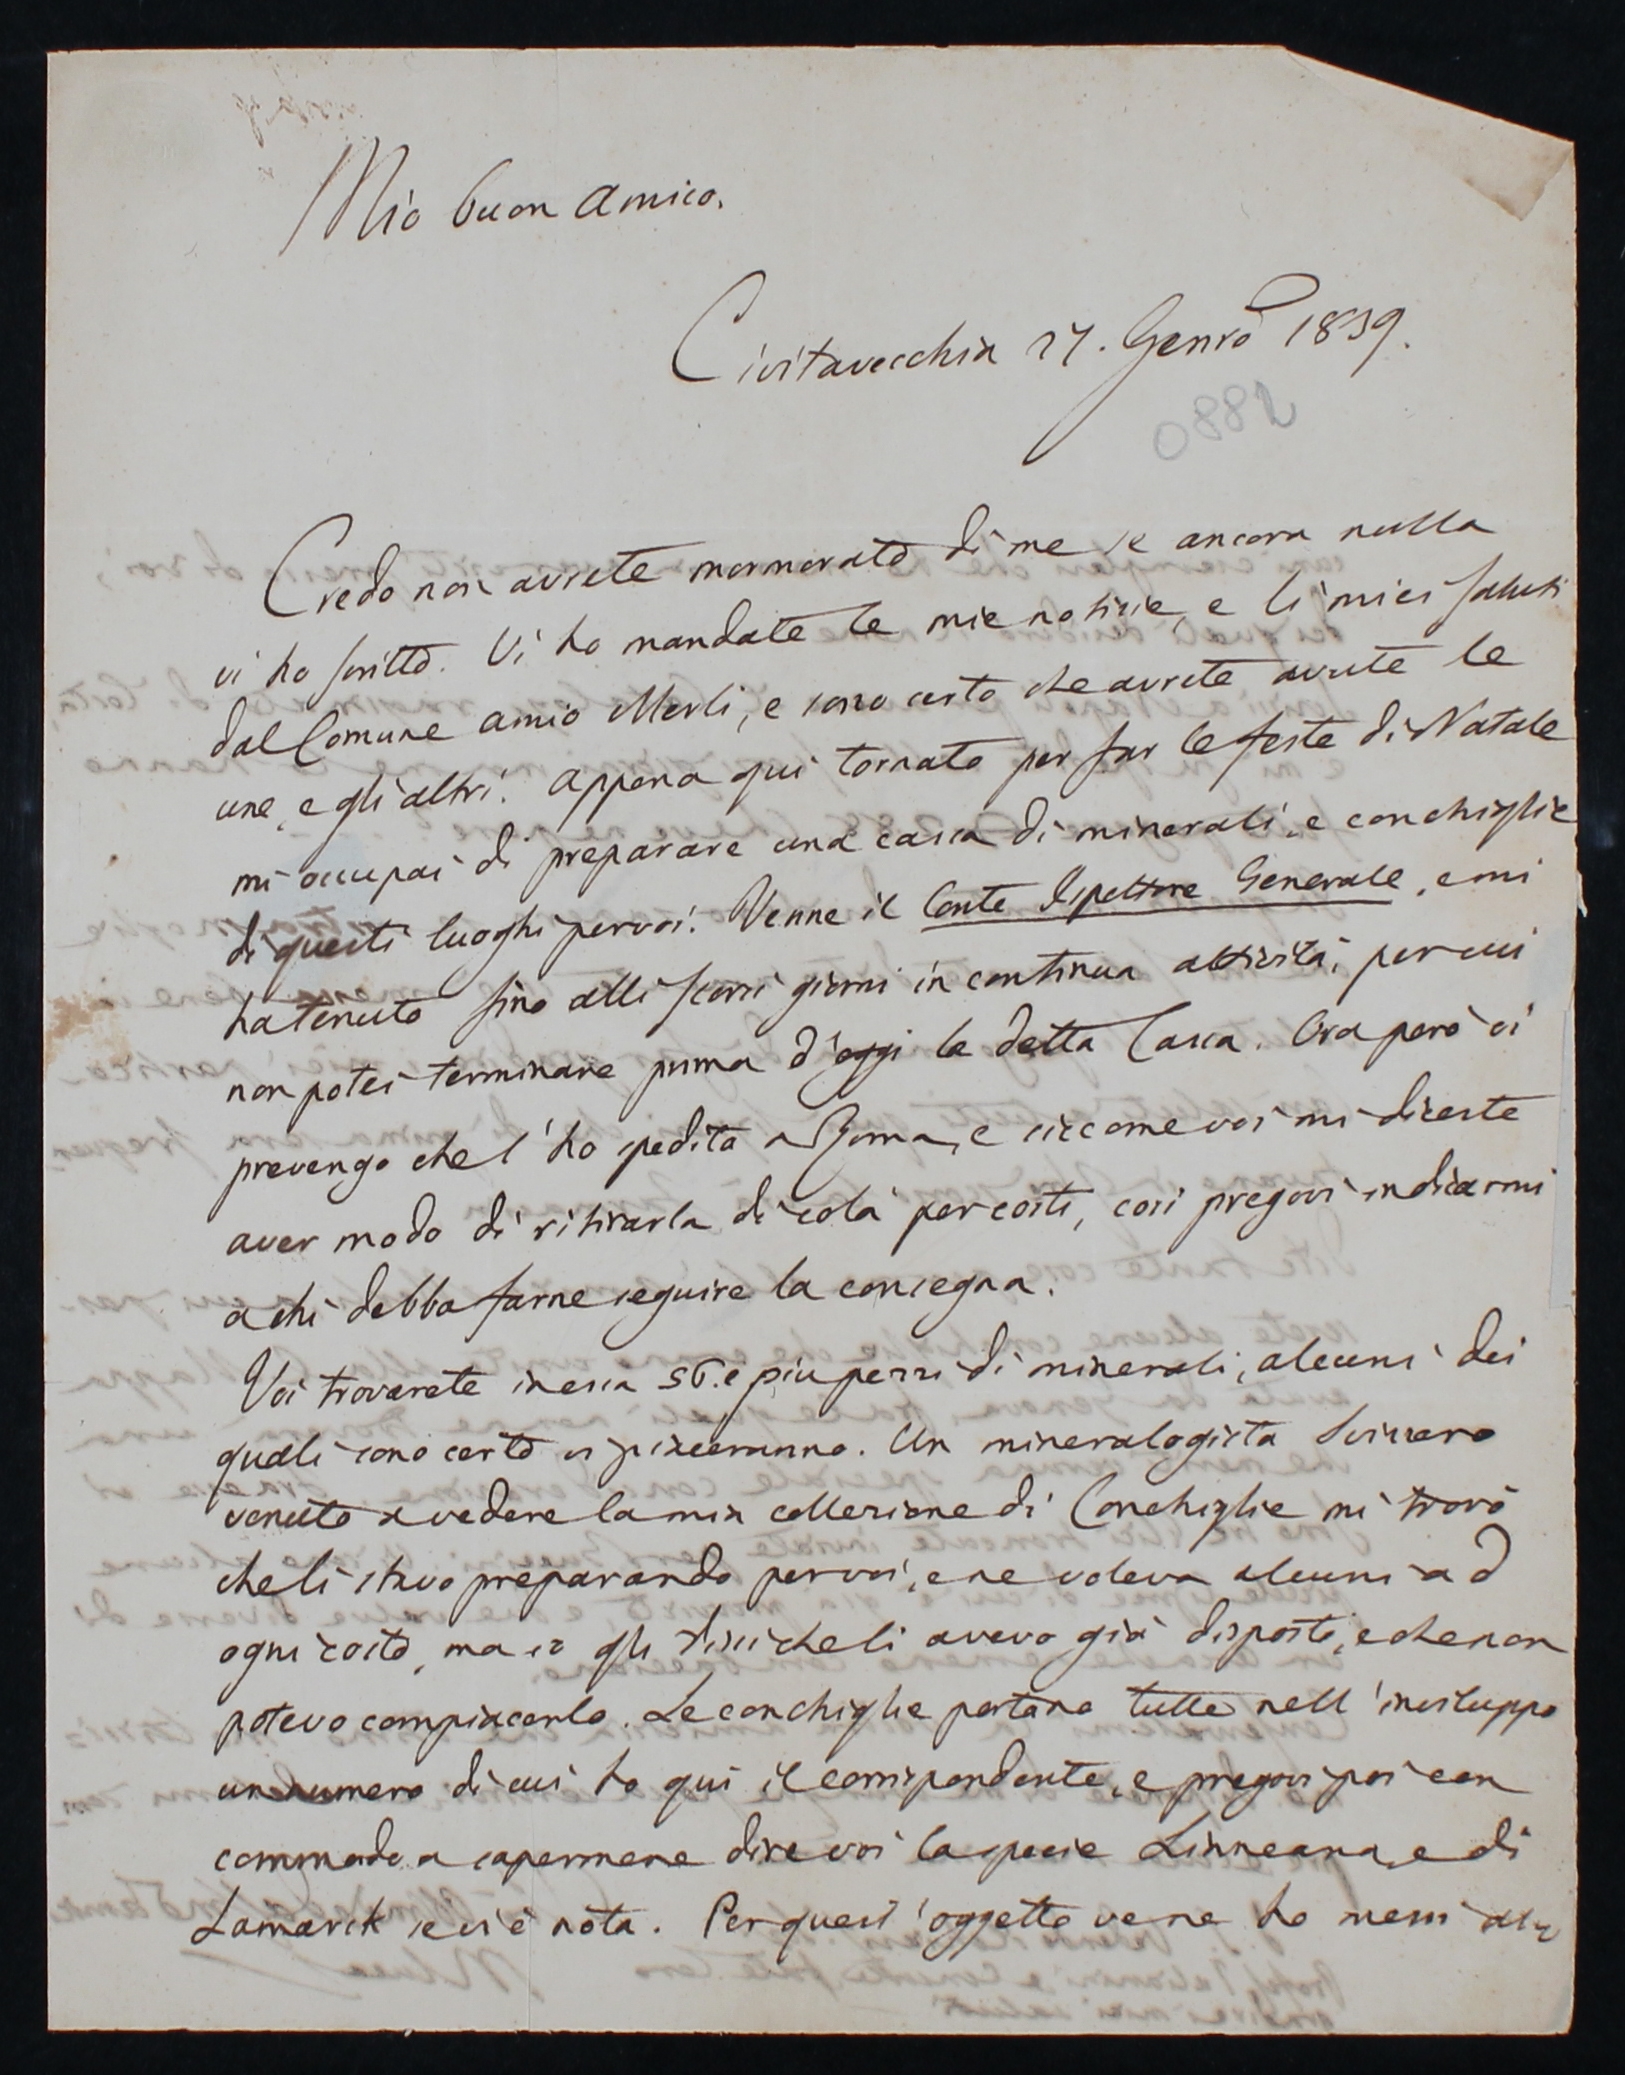 Mio buon Amico.
Civitavecchia 27. Genro 1839.
Credo non avrete mormorato di me se ancora nulla
vi ho scritto. Vi ho mandate le mie notizie, e li miei saluti
dal Comune amio Merli, e sono certo che avrete avute le
une, e gli altri. Appena qui tornato per far le feste di Natale
mi occupai di preparare una cassa di minerali, e conchiglie
di questi luoghi per voi. Venne il Conte Ispettore Generale, e mi
ha tenuto sino alli scorsi giorni in continua attività, per cui
non potei terminare prima d'oggi la detta Cassa. Ora però vi
prevengo che l'ho spedita a Roma, e siccome voi mi diceste
aver modo di ritirarla di colà per costì, così pregovi indicarmi
a chi debba farne seguire la consegna.
Voi troverete in essa 56. e più pezzi di minerali, alcuni dei
quali sono certo vi piaceranno. Un mineralogista Svizzero
venuto a vedere la mia collezione di Conchiglie mi trovò
che li stavo preparando per voi, e ne voleva alcuni ad
ogni costo, ma io gli dissi che li avevo già disposti, e che non
potevo compiacerlo. Le conchiglie portano tutte nell'inviluppo
un numero di cui ho qui il corrispondente, e pregovi poi con
commodo a sapermene dire voi la specie Linneana, e di
Lamarck se vi è nota. Per quest'oggetto ve ne ho messi